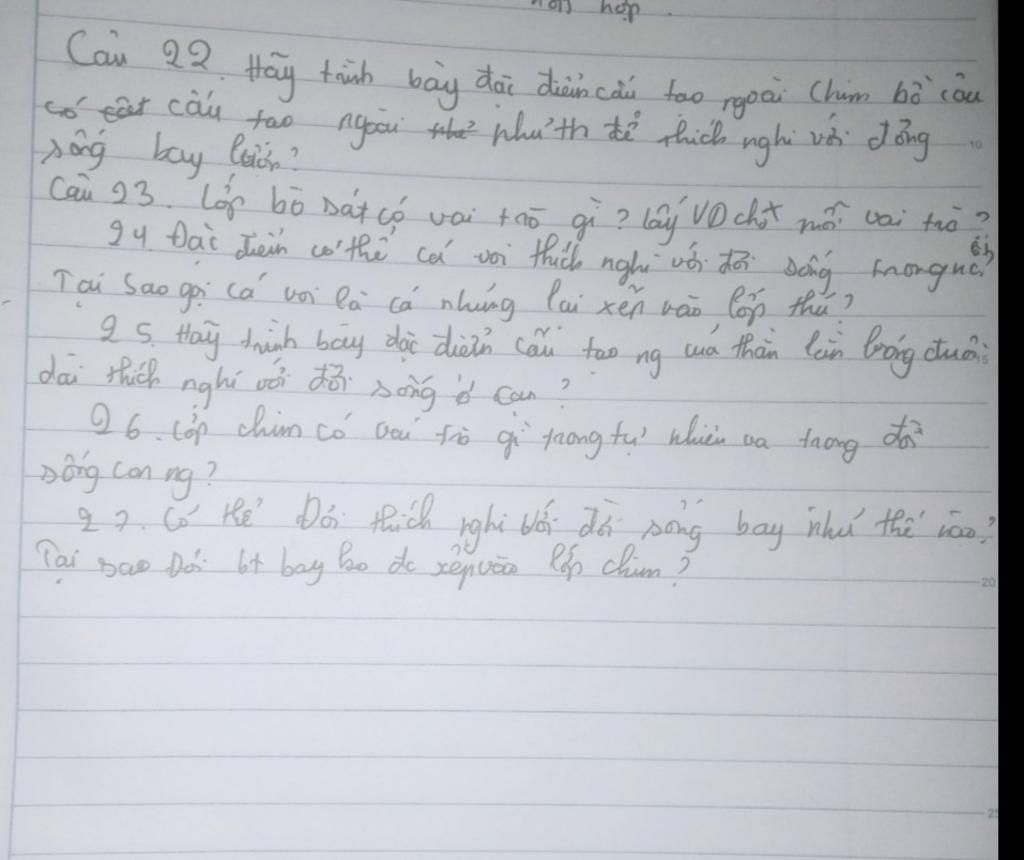 hỗn hợp.
Câu 22. Hãy trình bày đặc điểm cấu tạo ngoài chim bồ câu
có cấu tạo ngoài như th để thích nghi với đờng
sống bay lượn?
Câu 23. Lớp bò sát có vai trò gì? lấy VD cho mỗi vai trò?
24. Đặc điểm cơ thể cá voi thích nghi với đời sống trong nc?
Tại sao gọi cá voi là cá nhưng lại xếp vào lớp thú?
25. Hãy trình bày đặc điểm cấu tạo ng của thằn lằn bóng đuôi
dài thích nghi với đời sống ở cạn?
26. Lớp chim có vai trò gì trong tự nhiên va trong đời
sống con ng?
27. Cơ thể Dơi thích nghi với đời sống bay như thế nào?
Tại sao Dơi bt bay ko đc xếp vào lớp chim?